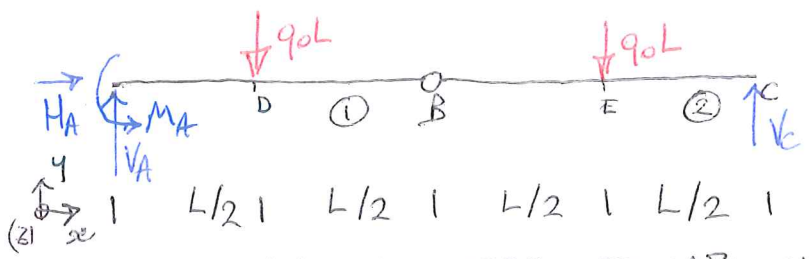 q₀L q₀L
H_A M_A D ① B E ② C
V_A V_C
y
(z) x L/2 L/2 L/2 L/2